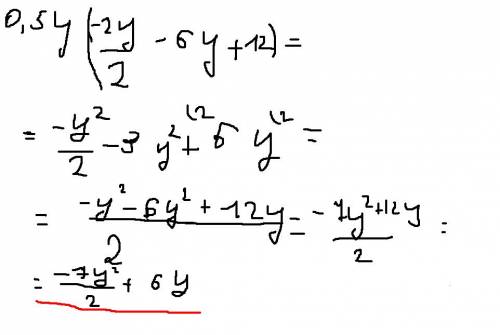 0,5y(-2y/2 - 6y + 12) =
= -y²/2 - 3 y² + 6 y =
= -y² - 6y² + 12y/2 = -7y² + 12y/2 =
= -7y²/2 + 6y